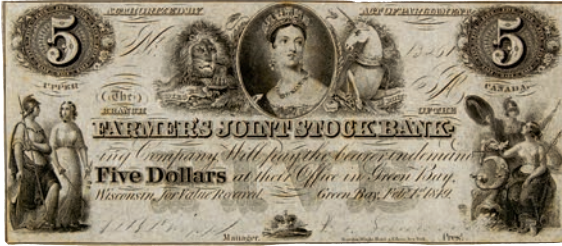 AUTHORIZED BY ACT OF PARLIAMENT
5 5
UPPER CANADA.
The
BRANCH OF THE
FARMER'S JOINT STOCK BANK-
ing Company Will pay the bearer on demand
Five Dollars at their Office in Green Bay,
Wisconsin, for Value Received. Green Bay, Feb. 1st 1849.
Manager. Presᵗ.